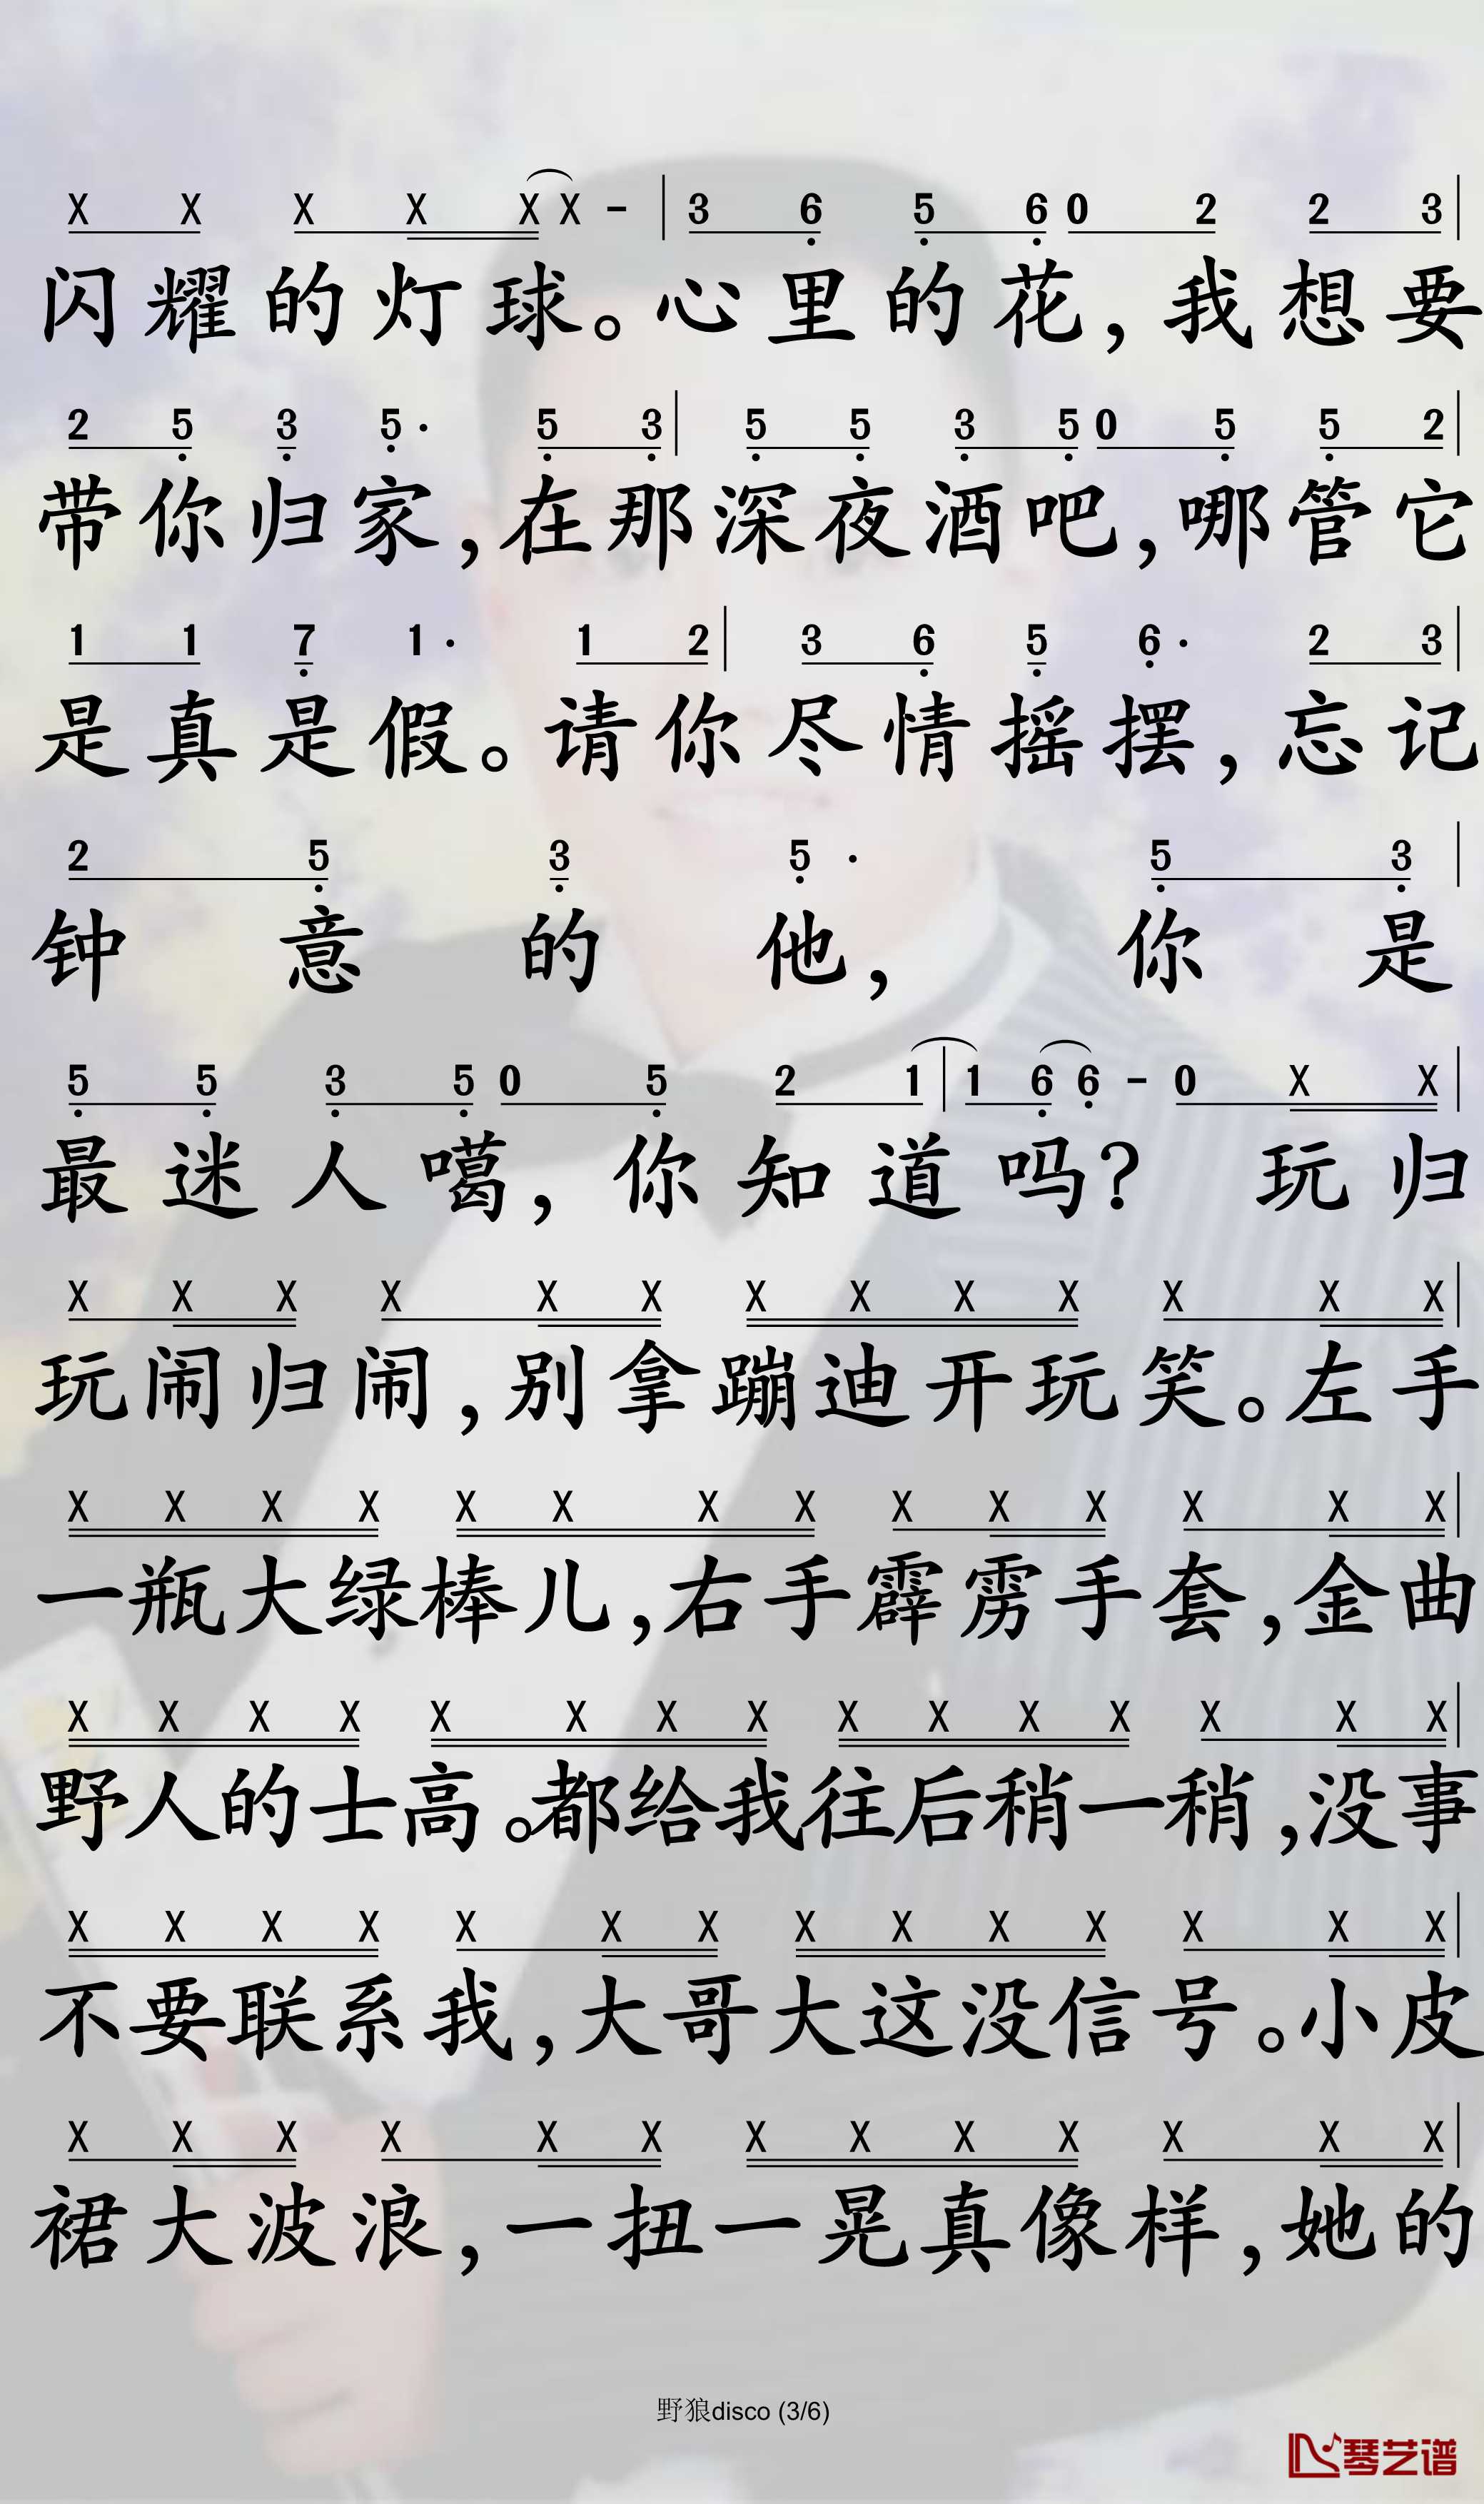 X X X X X X - | 3 6 5 6 0 2 2 3 |
闪耀的灯球。心里的花，我想要
2 5 3 5 · 5 3 | 5 5 3 5 0 5 5 2 |
带你归家，在那深夜酒吧，哪管它
1 1 7 1 · 1 2 | 3 6 5 6 · 2 3 |
是真是假。请你尽情摇摆，忘记
2 5 3 5 · 5 3 |
钟意的他，你是
5 5 3 5 0 5 2 1 | 1 6 6 - 0 X X |
最迷人噶，你知道吗？玩归
X X X X X X X X X X X X X |
玩闹归闹，别拿蹦迪开玩笑。左手
X X X X X X X X X X X X X X |
一瓶大绿棒儿，右手霹雳手套，金曲
X X X X X X X X X X X X X X X |
野人的士高。都给我往后稍一稍，没事
X X X X X X X X X X X X X X |
不要联系我，大哥大这没信号。小皮
X X X X X X X X X X X X X |
裙大波浪，一扭一晃真像样，她的
野狼disco (3/6)
琴艺谱